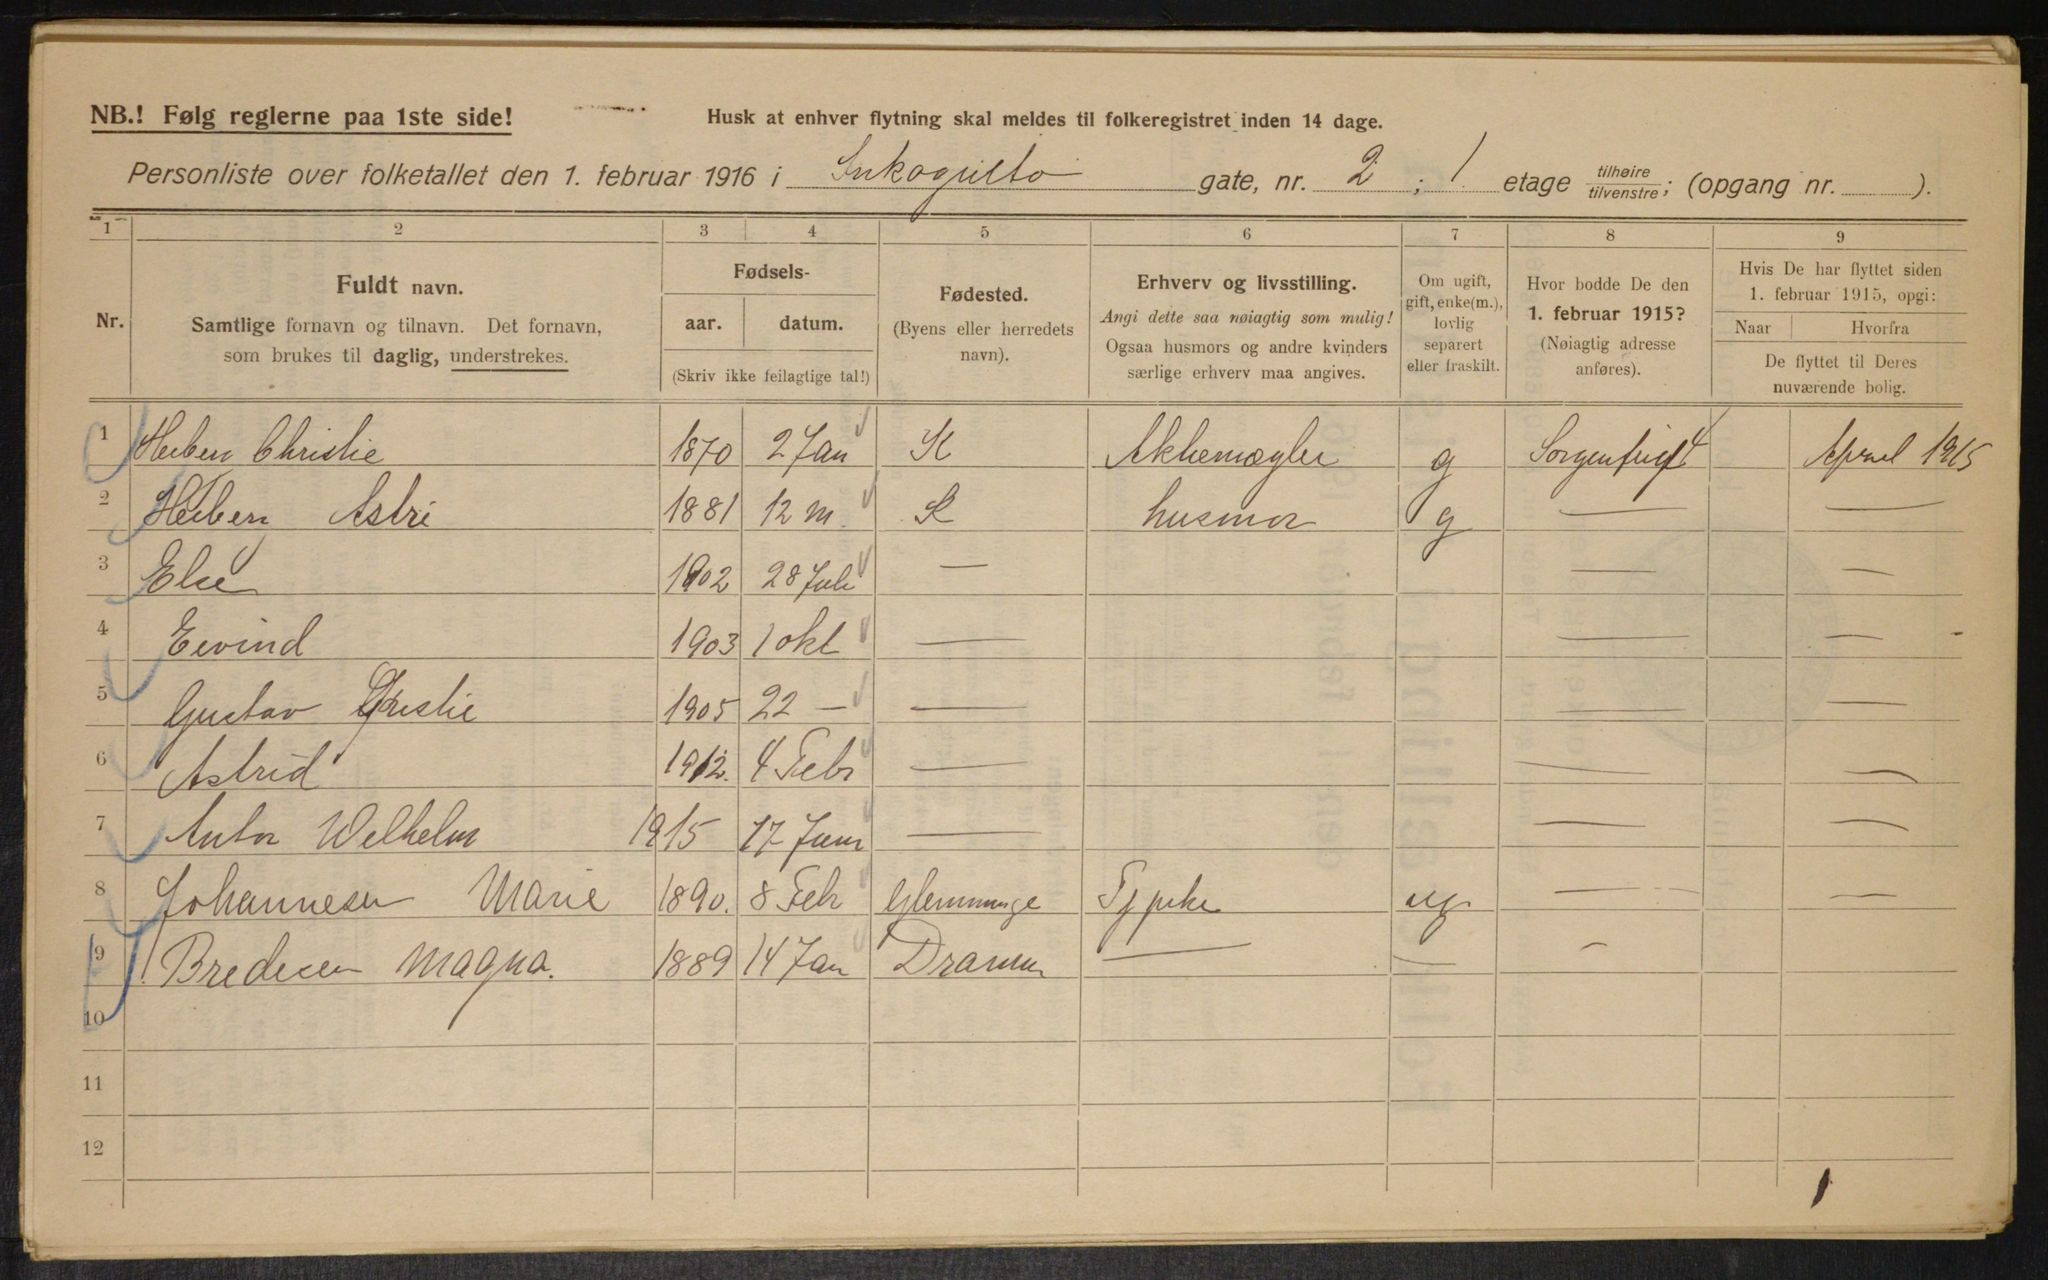 NB.! Følg reglerne paa 1ste side!
Husk at enhver flytning skal meldes til folkeregistret inden 14 dage.
Personliste over folketallet den 1. februar 1916 i Inkognito gate, nr. 2 ; 1. etage tilhøire tilvenstre; (opgang nr. ).
1 2 3 4 5 6 7 8 9
Nr.
Fuldt navn.
Samtlige fornavn og tilnavn. Det fornavn,
som brukes til daglig, understrekes.
Fødsels-
aar. datum.
(Skriv ikke feilagtige tal!)
Fødested.
(Byens eller herredets
navn).
Erhverv og livsstilling.
Angi dette saa nøiagtig som mulig!
Ogsaa husmors og andre kvinders
særlige erhverv maa angives.
Om ugift,
gift, enke(m.),
lovlig
separert
eller fraskilt.
Hvor bodde De den
1. februar 1915?
(Nøiagtig adresse
anføres).
Hvis De har flyttet siden
1. februar 1915, opgi:
Naar Hvorfra
De flyttet til Deres
nuværende bolig.
1 Heiben Christie 1870 2 Jan K Aktiemægler g 4 April 1915
2 Heiben Astri 1881 12 M. K husmor g — —
3 Else 1902 28 — — —
4 Eivind 1903 1 okt — — —
5 Gustav Christie 1905 22 — — — —
6 Astrid 1912. 4 Febr — — —
7 Anton Wilhelm 1915 17 — — —
8 Johannesen Marie 1890. 8 Febr Glemminge ug — —
9 Bredesen Magna. 1889 14 Jan Dramm — — —
10
11
12
1